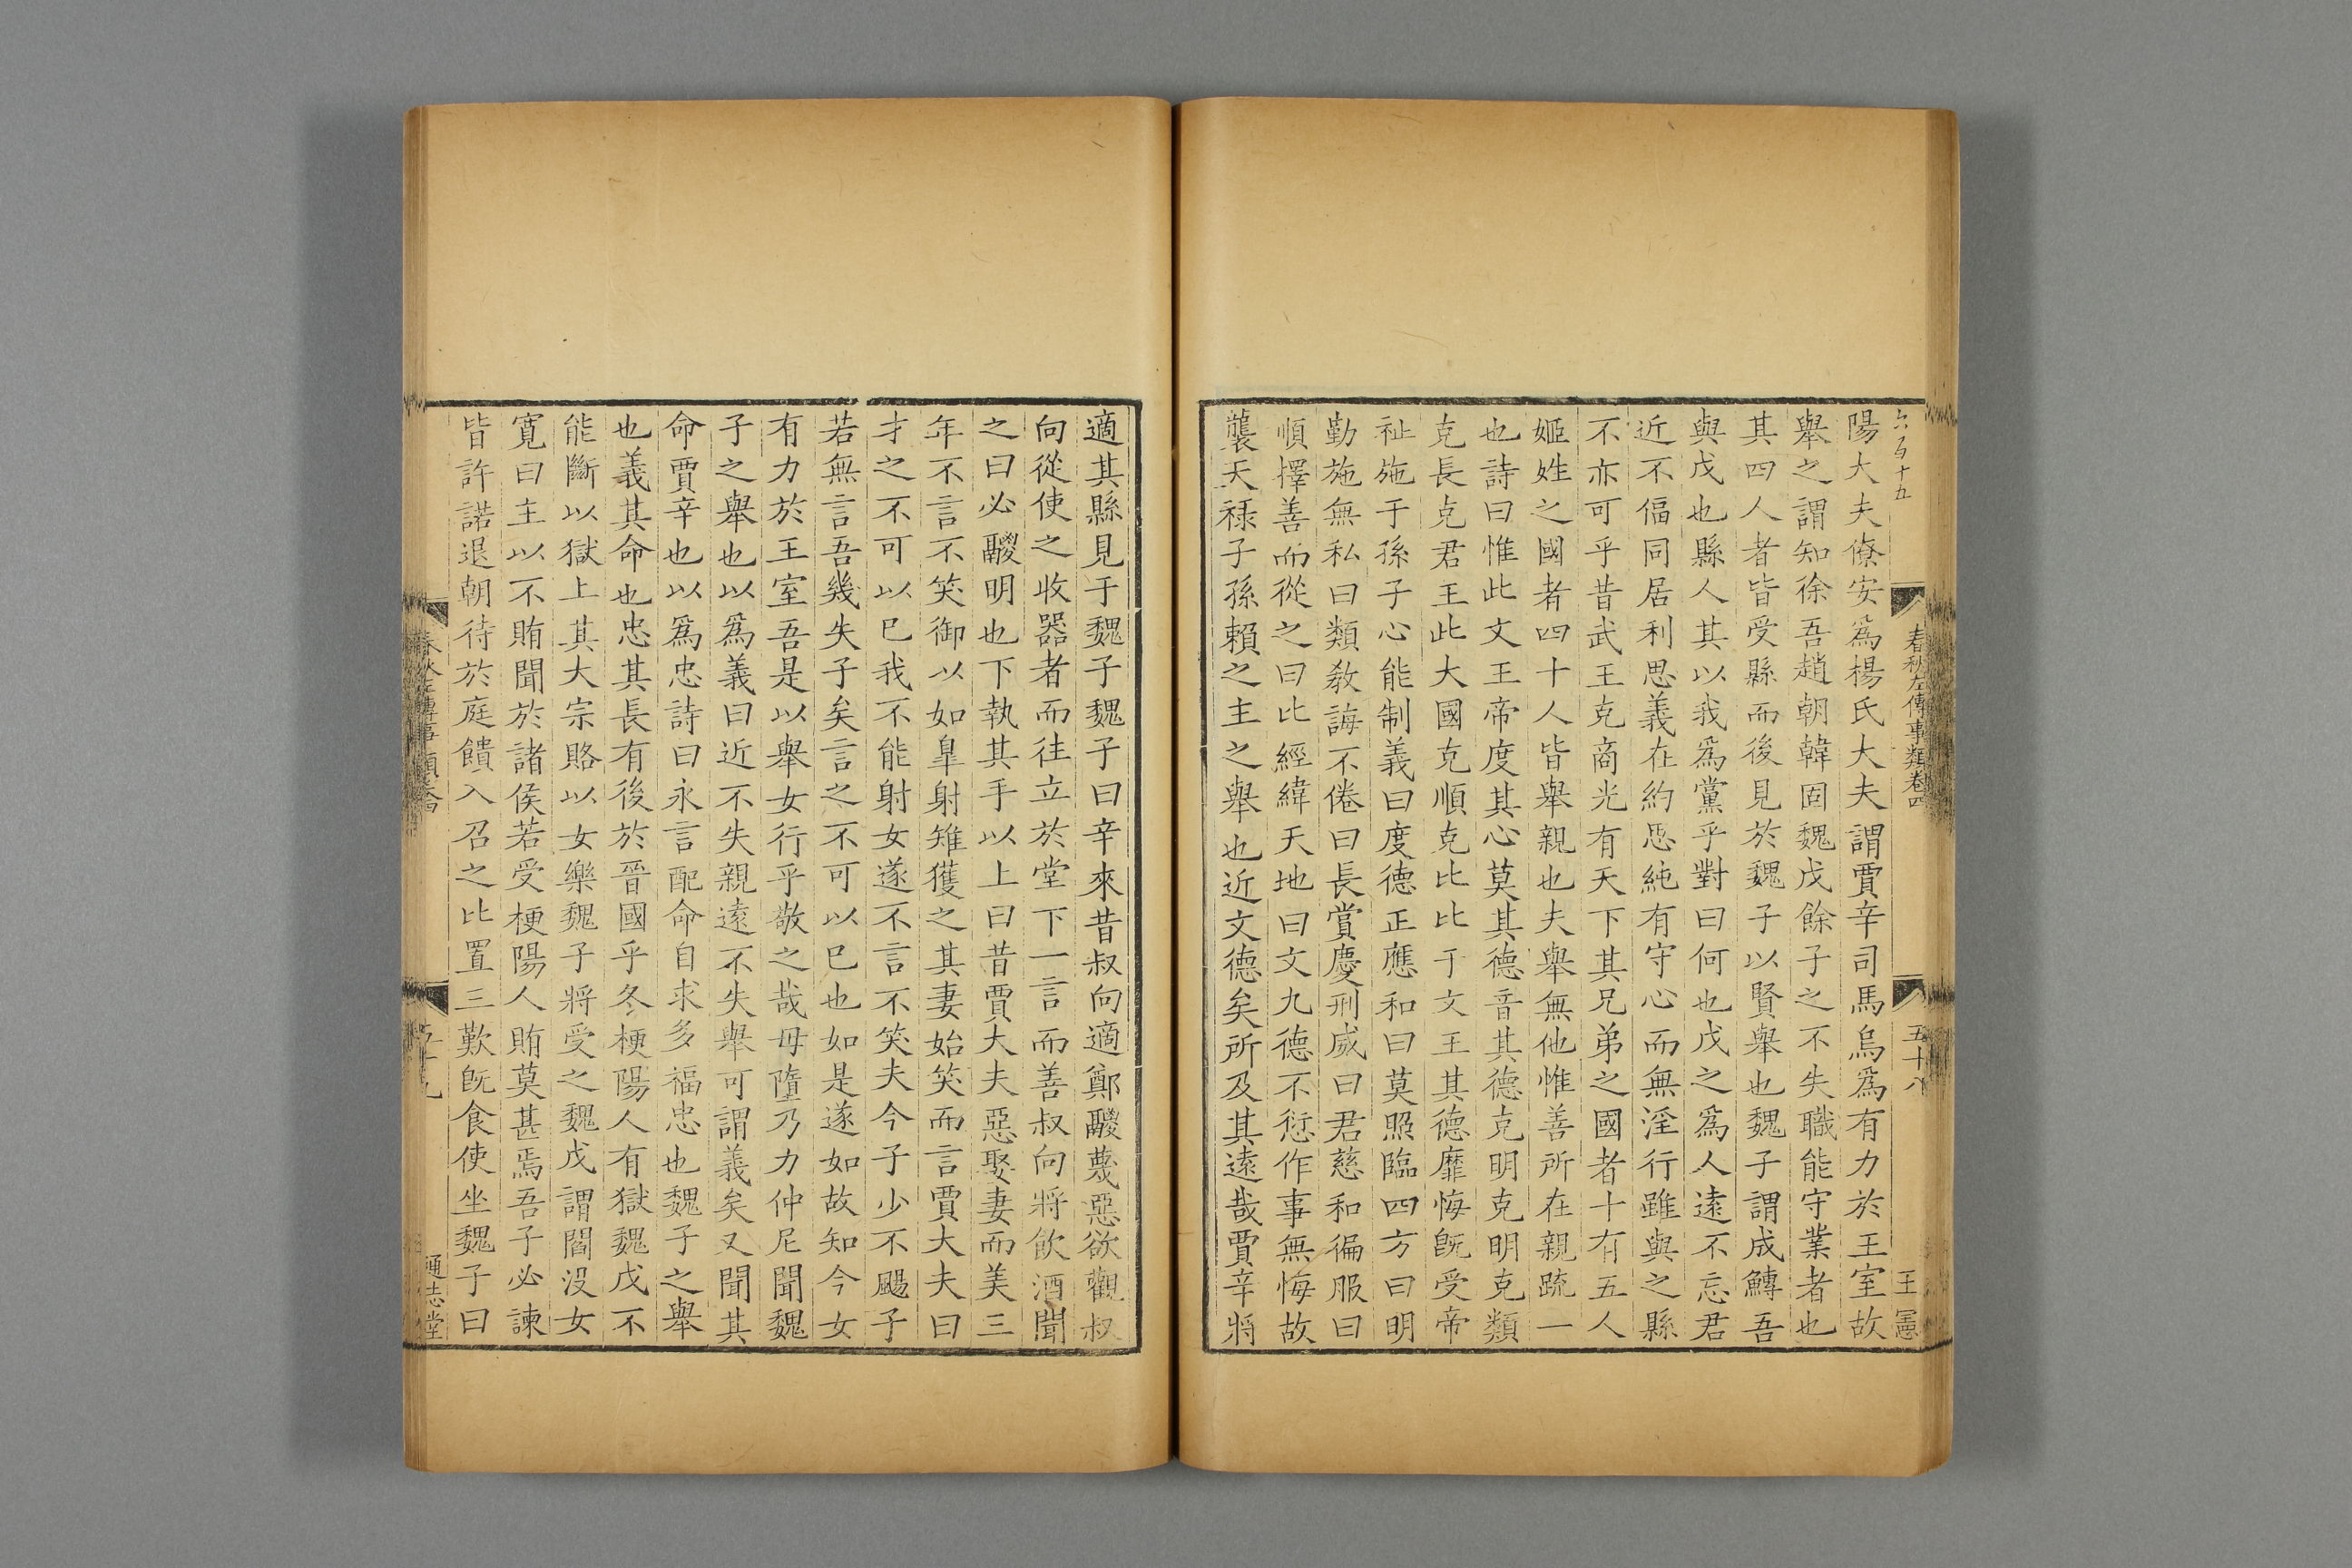 六百十五
春秋左傳事類卷四
五十八
王憲
陽大夫僚安爲楊氏大夫謂賈辛司馬烏爲有力於王室故
舉之謂知徐吾趙朝韓固魏戊餘子之不失職能守業者也
其四人者皆受縣而後見於魏子以賢舉也魏子謂成鱄吾
與戊也縣人其以我爲黨乎對曰何也戊之爲人遠不忘君
近不偪同居利思義在約思純有守心而無淫行雖與之縣
不亦可乎昔武王克商光有天下其兄弟之國者十有五人
姬姓之國者四十人皆舉親也夫舉無他惟善所在親疏一
也詩曰惟此文王帝度其心莫其德音其德克明克明克類
克長克君王此大國克順克比比于文王其德靡悔旣受帝
祉施于孫子心能制義曰度德正應和曰莫照臨四方曰明
勤施無私曰類敎誨不倦曰長賞慶刑威曰君慈和徧服曰
順擇善而從之曰比經緯天地曰文九德不愆作事無悔故
襲天祿子孫賴之主之舉也近文德矣所及其遠哉賈辛將
適其縣見于魏子魏子曰辛來昔叔向適鄭鬷蔑惡欲觀叔
向從使之收器者而往立於堂下一言而善叔向將飮酒聞
之曰必鬷明也下執其手以上曰昔賈大夫惡娶妻而美三
年不言不笑御以如臯射雉獲之其妻始笑而言賈大夫曰
才之不可以已我不能射女遂不言不笑夫今子少不颺子
若無言吾幾失子矣言之不可以已也如是遂如故知今女
有力於王室吾是以舉女行乎敬之哉毋墮乃力仲尼聞魏
子之舉也以爲義曰近不失親遠不失舉可謂義矣又聞其
命賈辛也以爲忠詩曰永言配命自求多福忠也魏子之舉
也義其命也忠其長有後於晉國乎冬梗陽人有獄魏戊不
能斷以獄上其大宗賂以女樂魏子將受之魏戊謂閻沒女
寬曰主以不賄聞於諸侯若受梗陽人賄莫甚焉吾子必諫
皆許諾退朝待於庭饋入召之比置三歎旣食使坐魏子曰
春秋左傳事類卷四
五十九
通志堂